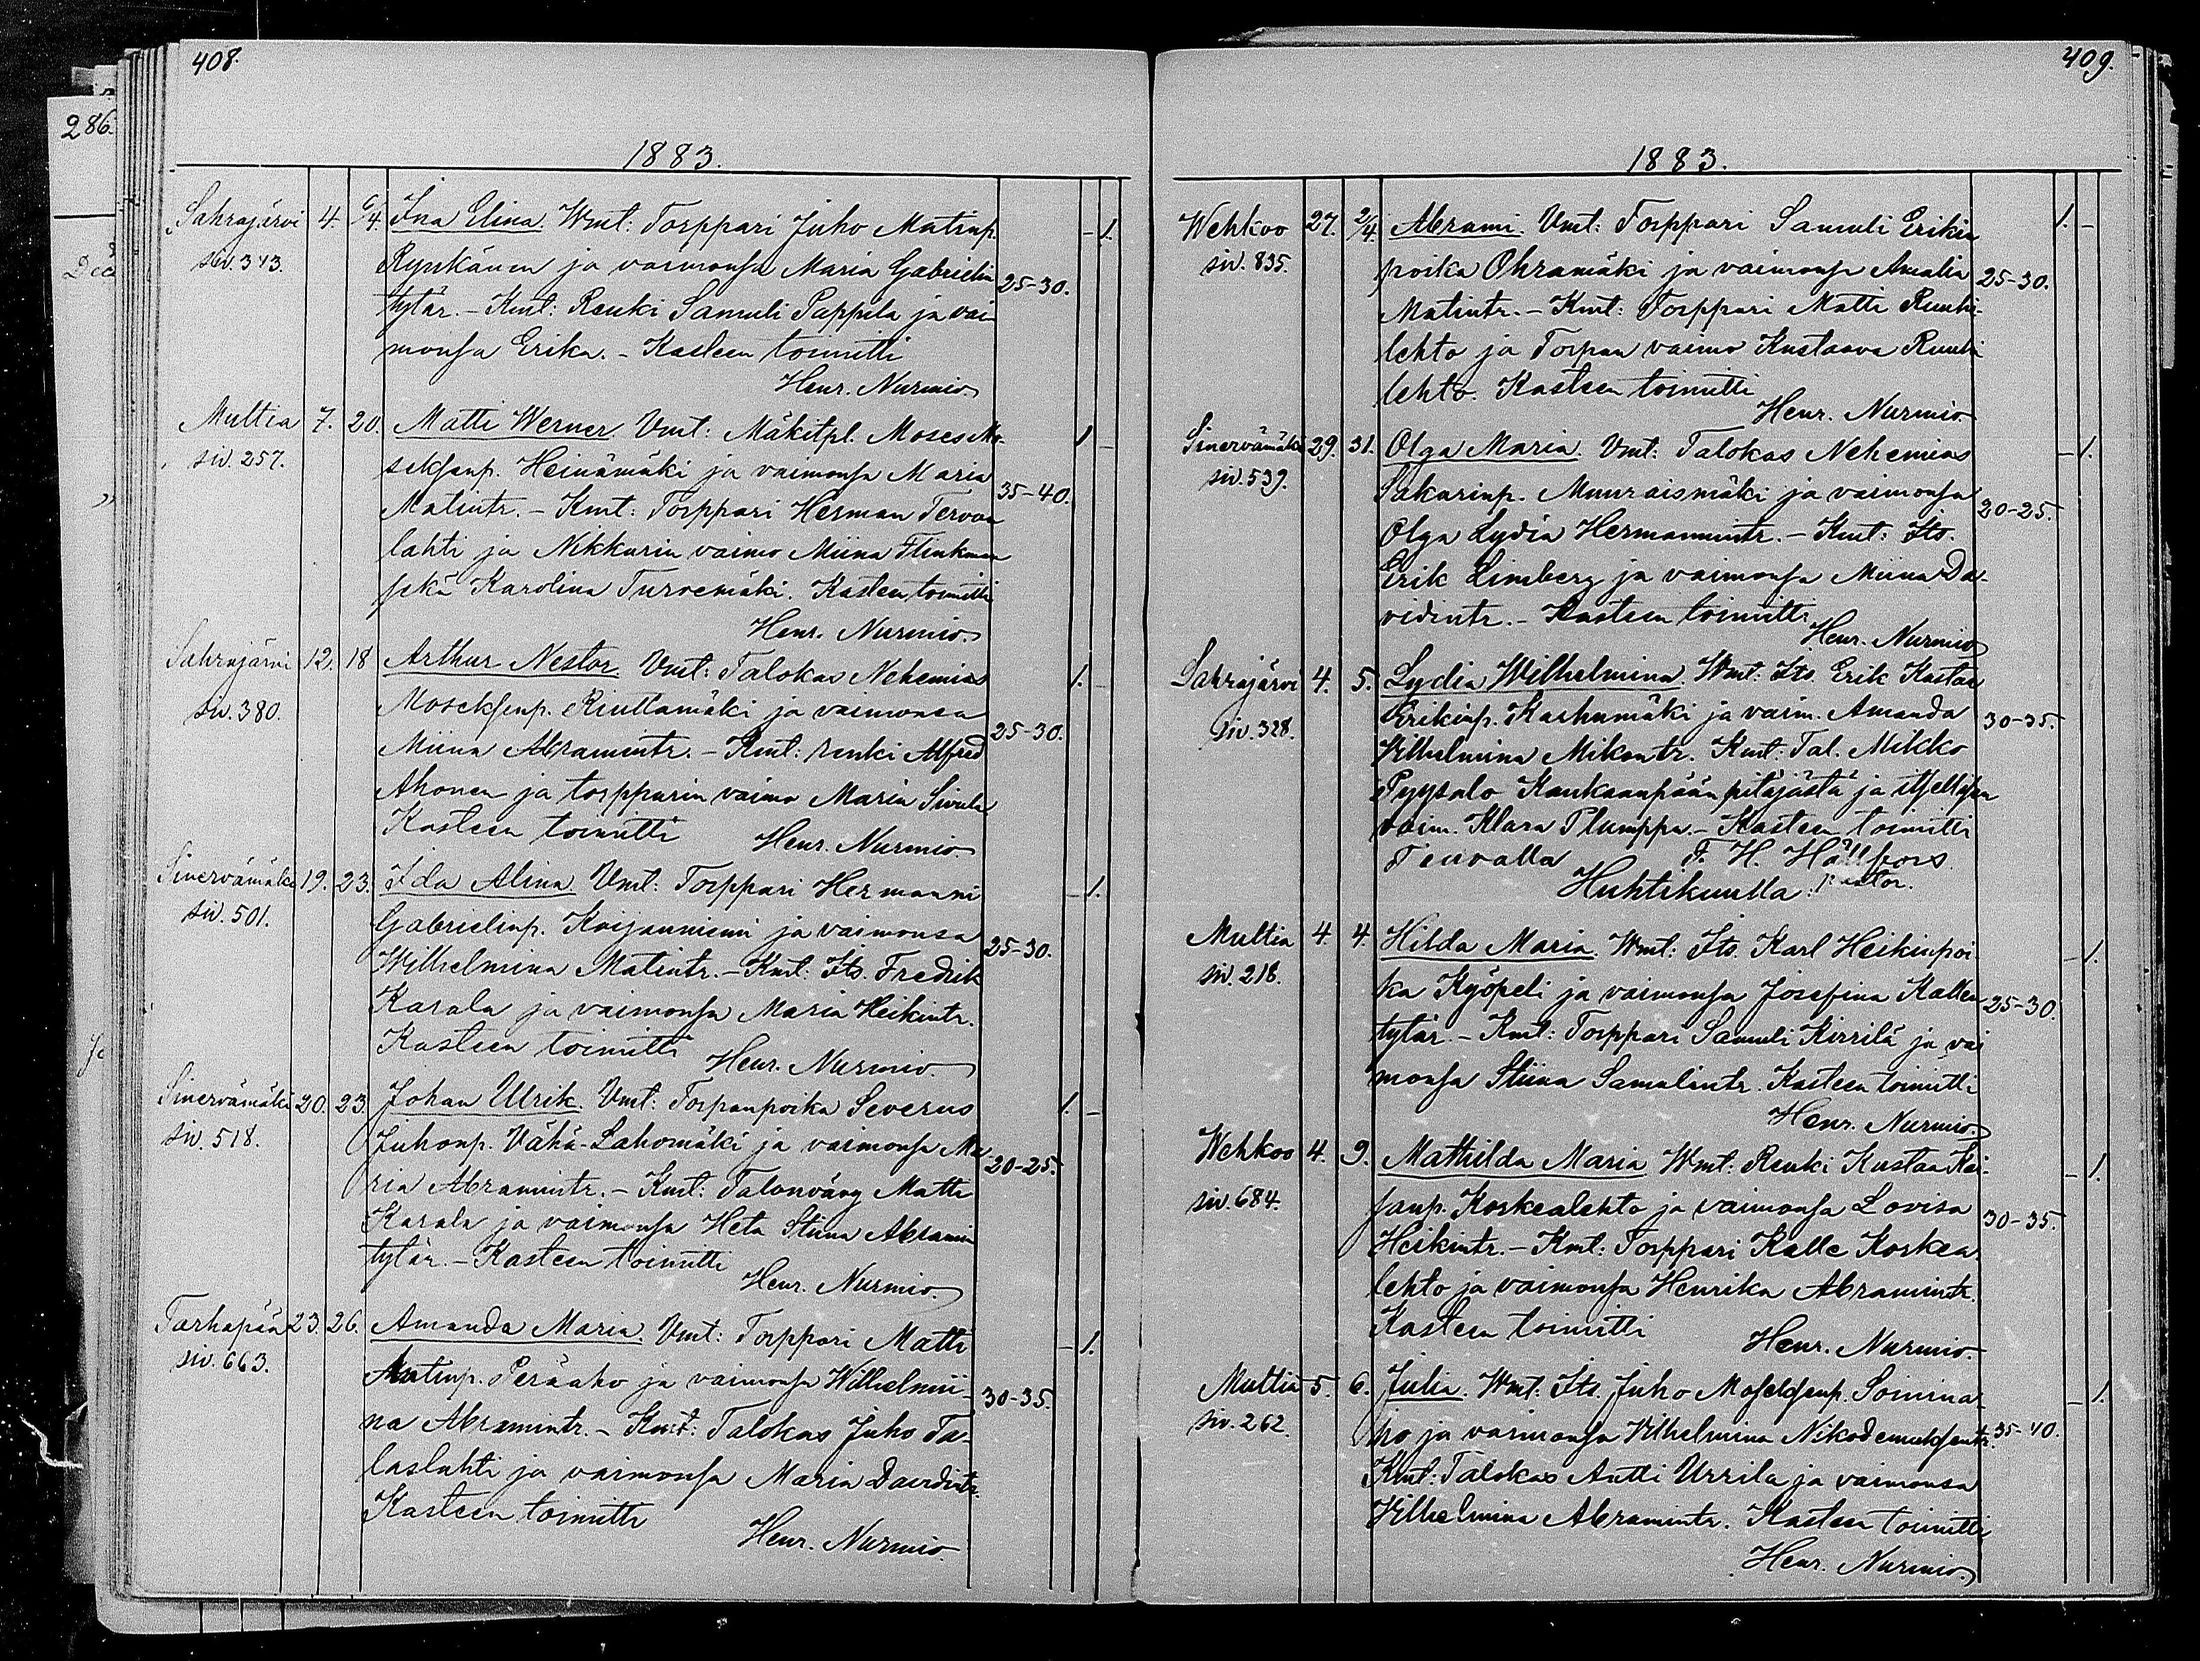 408.
286.
1883.
Sahrajärvi 4. 6/4. Ina Elina. Wmt: Torppari Juho Matinp. - 1.
siv. 343. Rynkänen ja vaimonsa Maria Gabrielin 25-30.
tytär. - Kmt: Renki Samuli Pappila ja vai
monsa Erika. - Kasteen toimitti
Henr. Nurmio.
Multia 7. 20. Matti Werner. Vmt: Mäkitpl. Moses Mo- 1 -
siv. 257. seksenp. Heinämäki ja vaimonsa Maria 35-40.
Matintr. - Kmt: Torppari Herman Tervan
lahti ja Nikkarin vaimo Miina Flinkman
sekä Karolina Turvemäki. Kasteen toimitti
Henr. Nurmio.
Sahrajärvi 12. 18 Arthur Nestor. Vmt: Talokas Nehemias 1. -
siv. 380. Moseksenp. Riuttamäki ja vaimonsa 25-30.
Miina Abramintr. - Kmt: renki Alfred
Ahonen ja torpparin vaimo Maria Sivula
Kasteen toimitti Henr. Nurmio.
Sinervämäki 19. 23. Ida Alina. Vmt: Torppari Hermanni - 1.
siv. 501. Gabrielinp. Koijanniemi ja vaimonsa 25-30.
Wilhelmina Matintr. - Kmt: Its. Fredrik
Karala ja vaimonsa Maria Heikintr.
Kasteen toimitti Henr. Nurmio.
Sinervämäki 20. 23. Johan Ulrik. Vmt: Torpanpoika Severus 1. -
siv. 518. Juhonp. Vähä-Lahomäki ja vaimonsa Ma 20-25.
ria Abramintr. - Kmt: Talonväng Matti
Karala ja vaimonsa Heta Stiina Abramin
tytär. - Kasteen toimitti
Henr. Nurmio.
Tarhapää 23. 26. Amanda Maria. Vmt: Torppari Matti - 1.
siv. 663. Matinp. Peräaho ja vaimonsa Wilhelmii- 30-35.
na Abramintr. - Kmt: Talokas Juho Ta-
laslahti ja vaimonsa Maria Davidintr.
Kasteen toimitti
Henr. Nurmio.
409.
1883.
Wehkoo 27. 2/4. Abrami. Vmt: Torppari Samuli Erikin 1. -
siv. 835. poika Ohramäki ja vaimonsa Amalia 25-30.
Matintr. - Kmt: Torppari Matti Ruuhi-
lehto ja Torpan vaimo Kustaava Ruuhi
lehto. Kasteen toimitti
Henr. Nurmio.
Sinervämäki 29. 31. Olga Maria. Vmt: Talokas Nehemias - 1.
siv. 539. Sakarinp. Muuraismäki ja vaimonsa 20-25.
Olga Lydia Hermannintr. - Kmt: Its.
Erik Limberg ja vaimonsa Miina Da-
vidintr. - Kasteen toimitti
Henr. Nurmio
Sahrajärvi 4. 5. Lydia Wilhelmina. Wmt: Its. Erik Kustaa
siv. 328. Erikinp. Karhumäki ja vaim. Amanda 30-35.
Vilhelmina Mikontr. Kmt: Tal. Mikko
Pyysalo Kankaanpään pitäjästä ja itsellisen
vaim. Klara Plumppu. - Kasteen toimitti
Teuvalla F. H. Hällfors
pastor.
Huhtikuulla
Multia 4. 4. Hilda Maria. Wmt: Its. Karl Heikinpoi - 1.
siv. 218. ka Kyöpeli ja vaimonsa Josefina Kallen 25-30.
tytär. - Kmt: Torppari Samuli Kirrilä ja vai
monsa Stiina Samulintr. Kasteen toimitti
Henr. Nurmio.
Wehkoo 4. 9. Mathilda Maria. Wmt: Renki Kustaa Kai- - 1.
siv. 684. sanp. Koskealehto ja vaimonsa Lovisa 30-35.
Heikintr. - Kmt: Torppari Kalle Koskea
lehto ja vaimonsa Henrika Abramintr.
Kasteen toimitti
Henr. Nurmio.
Multia 5. 6. Julia. Wmt: Its. Juho Moseksenp. Soinina- - 1.
siv. 262. ho ja vaimonsa Vilhelmina Nikodemuksentr. 35-40.
Kmt: Talokas Antti Urrila ja vaimonsa
Vilhelmina Abramintr. Kasteen toimitti
Henr. Nurmio.